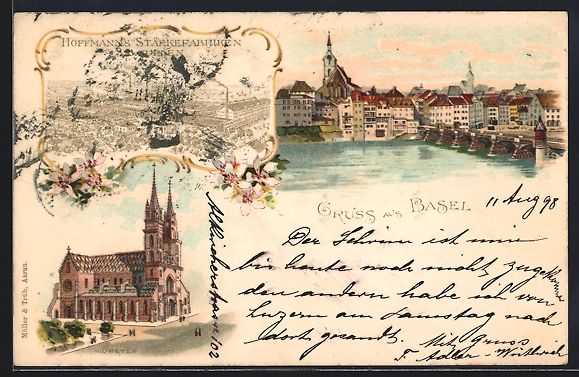 HOFFMANN'S STÄRKEFABRIKEN
GRUSS AUS BASEL
11 Aug 98
Der Schirm ist mir
bis heute noch nicht zugekommen
den andern habe ich von
Luzern am Samstag nach
dort gesandt. Mit Gruss
F. Adler-
Altkircherstrasse 102
MÜNSTER
Müller & Trüb, Aarau.